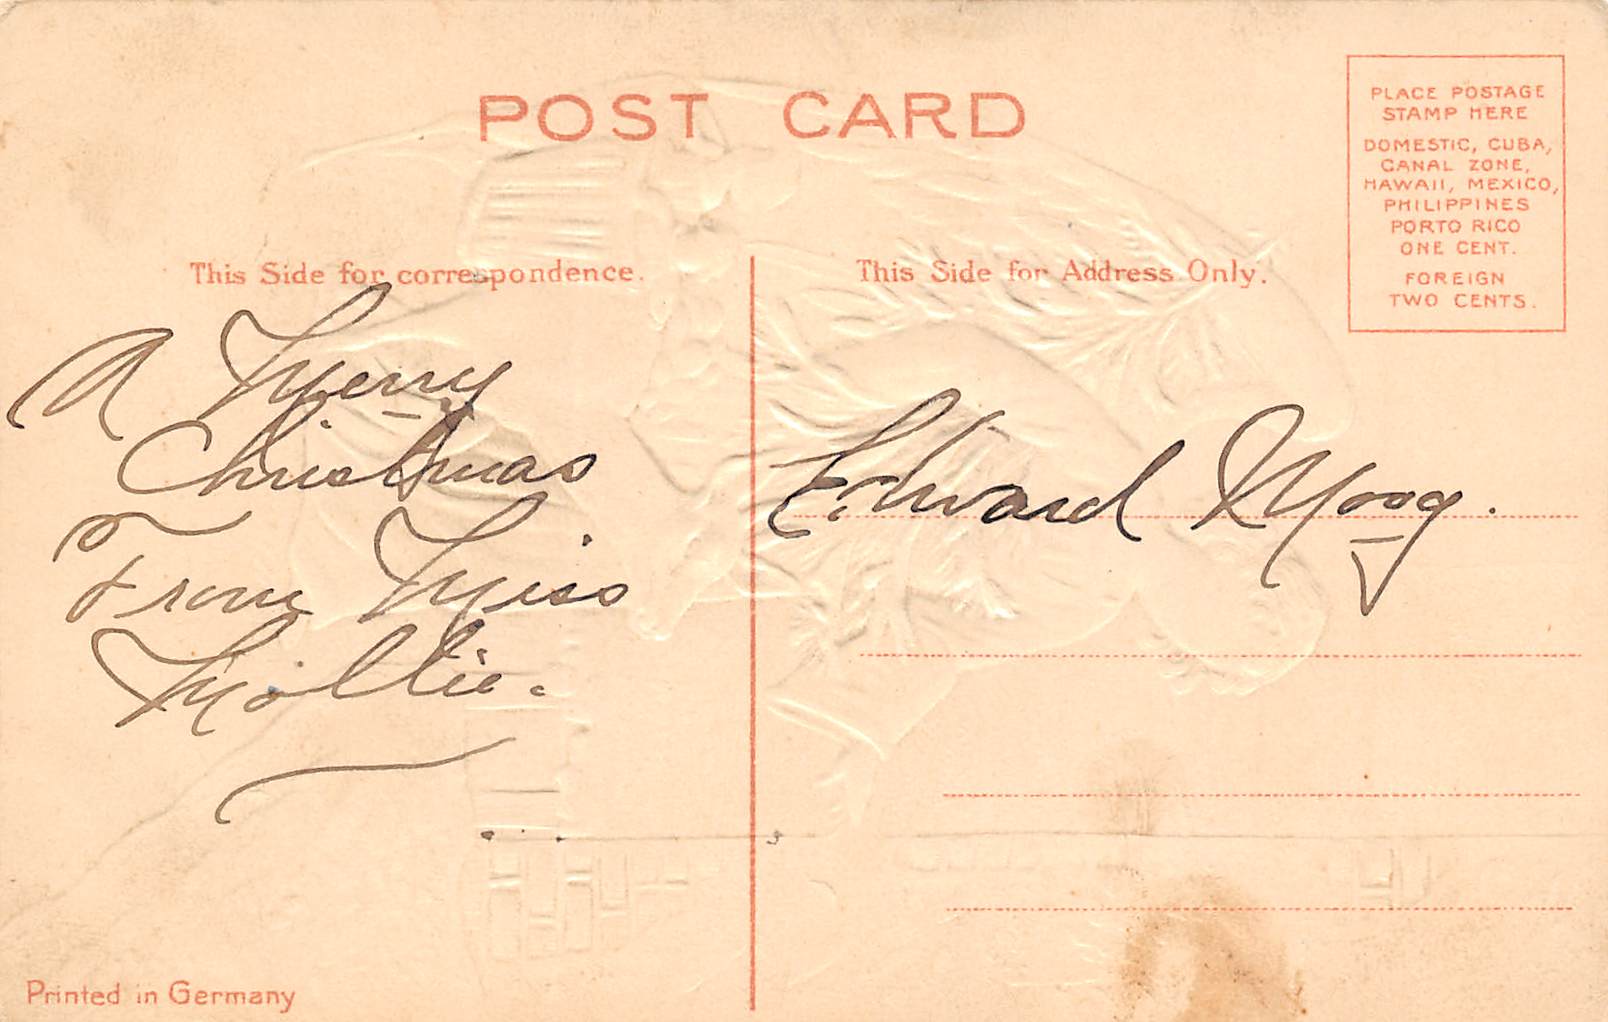 POST CARD
PLACE POSTAGE
STAMP HERE
DOMESTIC, CUBA,
CANAL ZONE,
HAWAII, MEXICO,
PHILIPPINES
PORTO RICO
ONE CENT.
FOREIGN
TWO CENTS.
This Side for correspondence.
This Side for Address Only.
A Merry
Christmas
From Miss
Mollie.
Edward Moog.
Printed in Germany